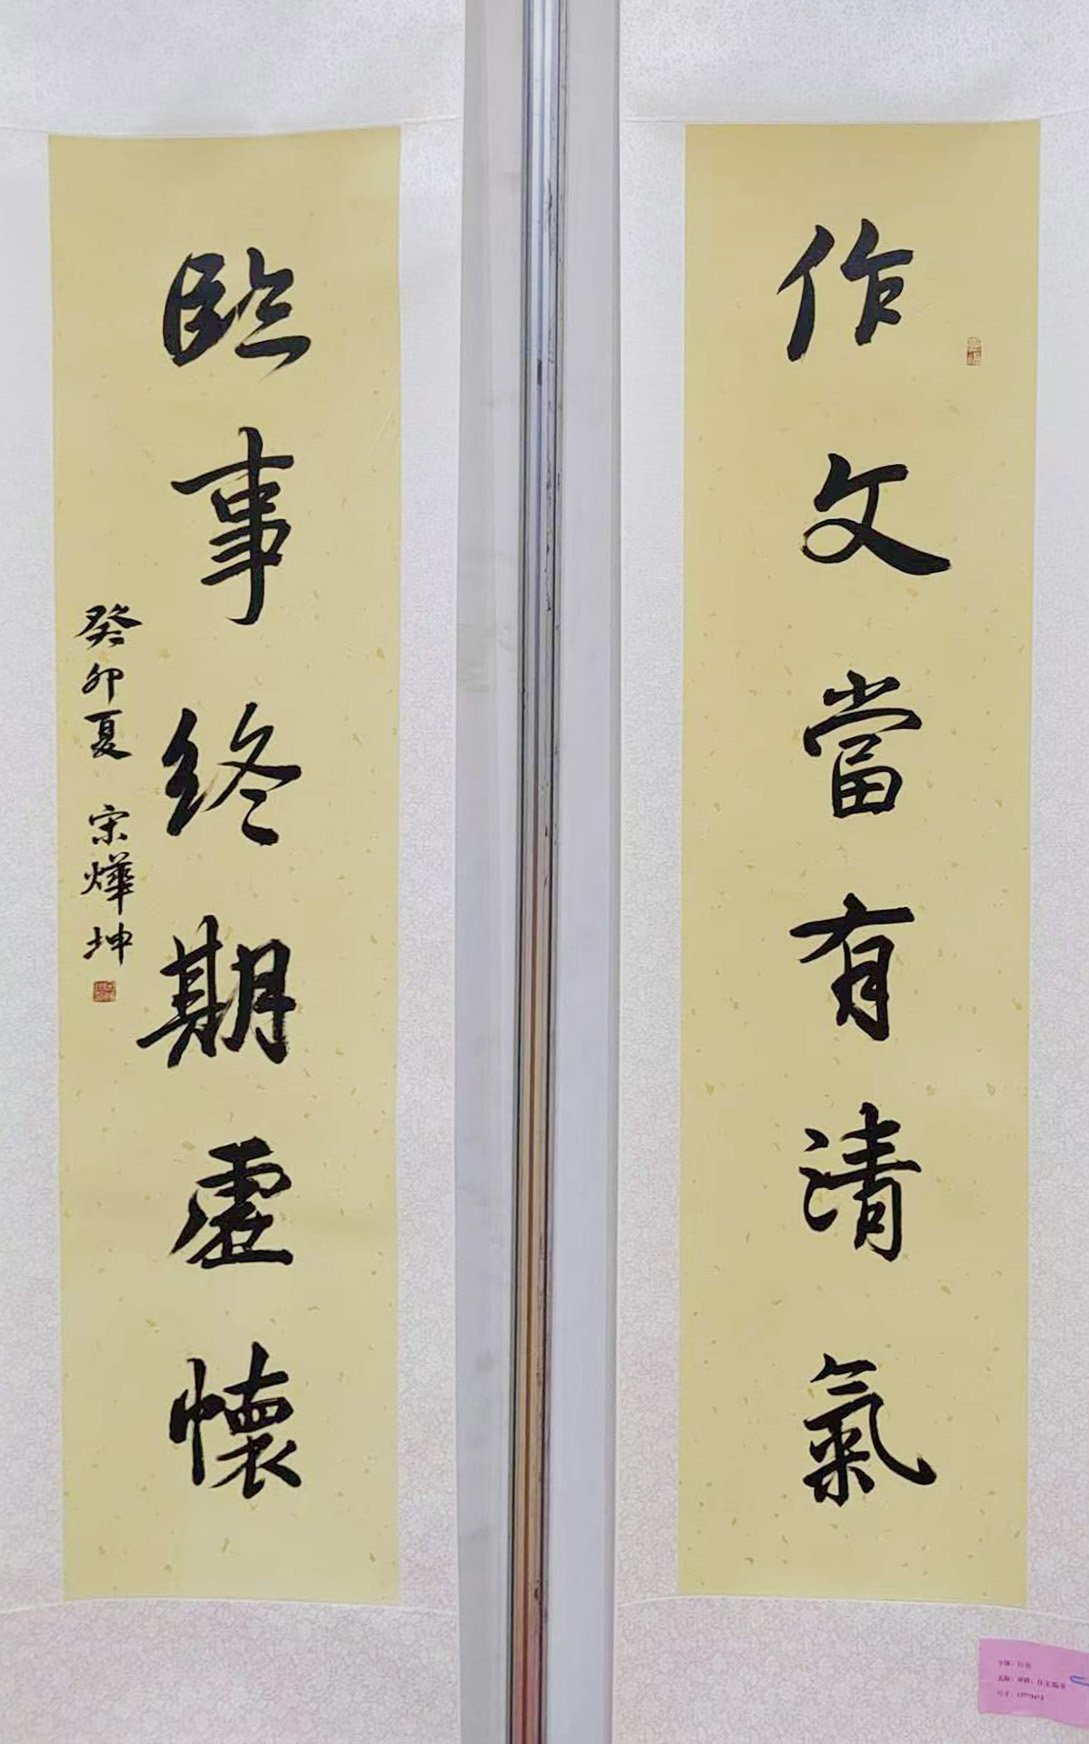 作文當有清氣
臨事終期虛懷
癸卯夏 宋燁坤